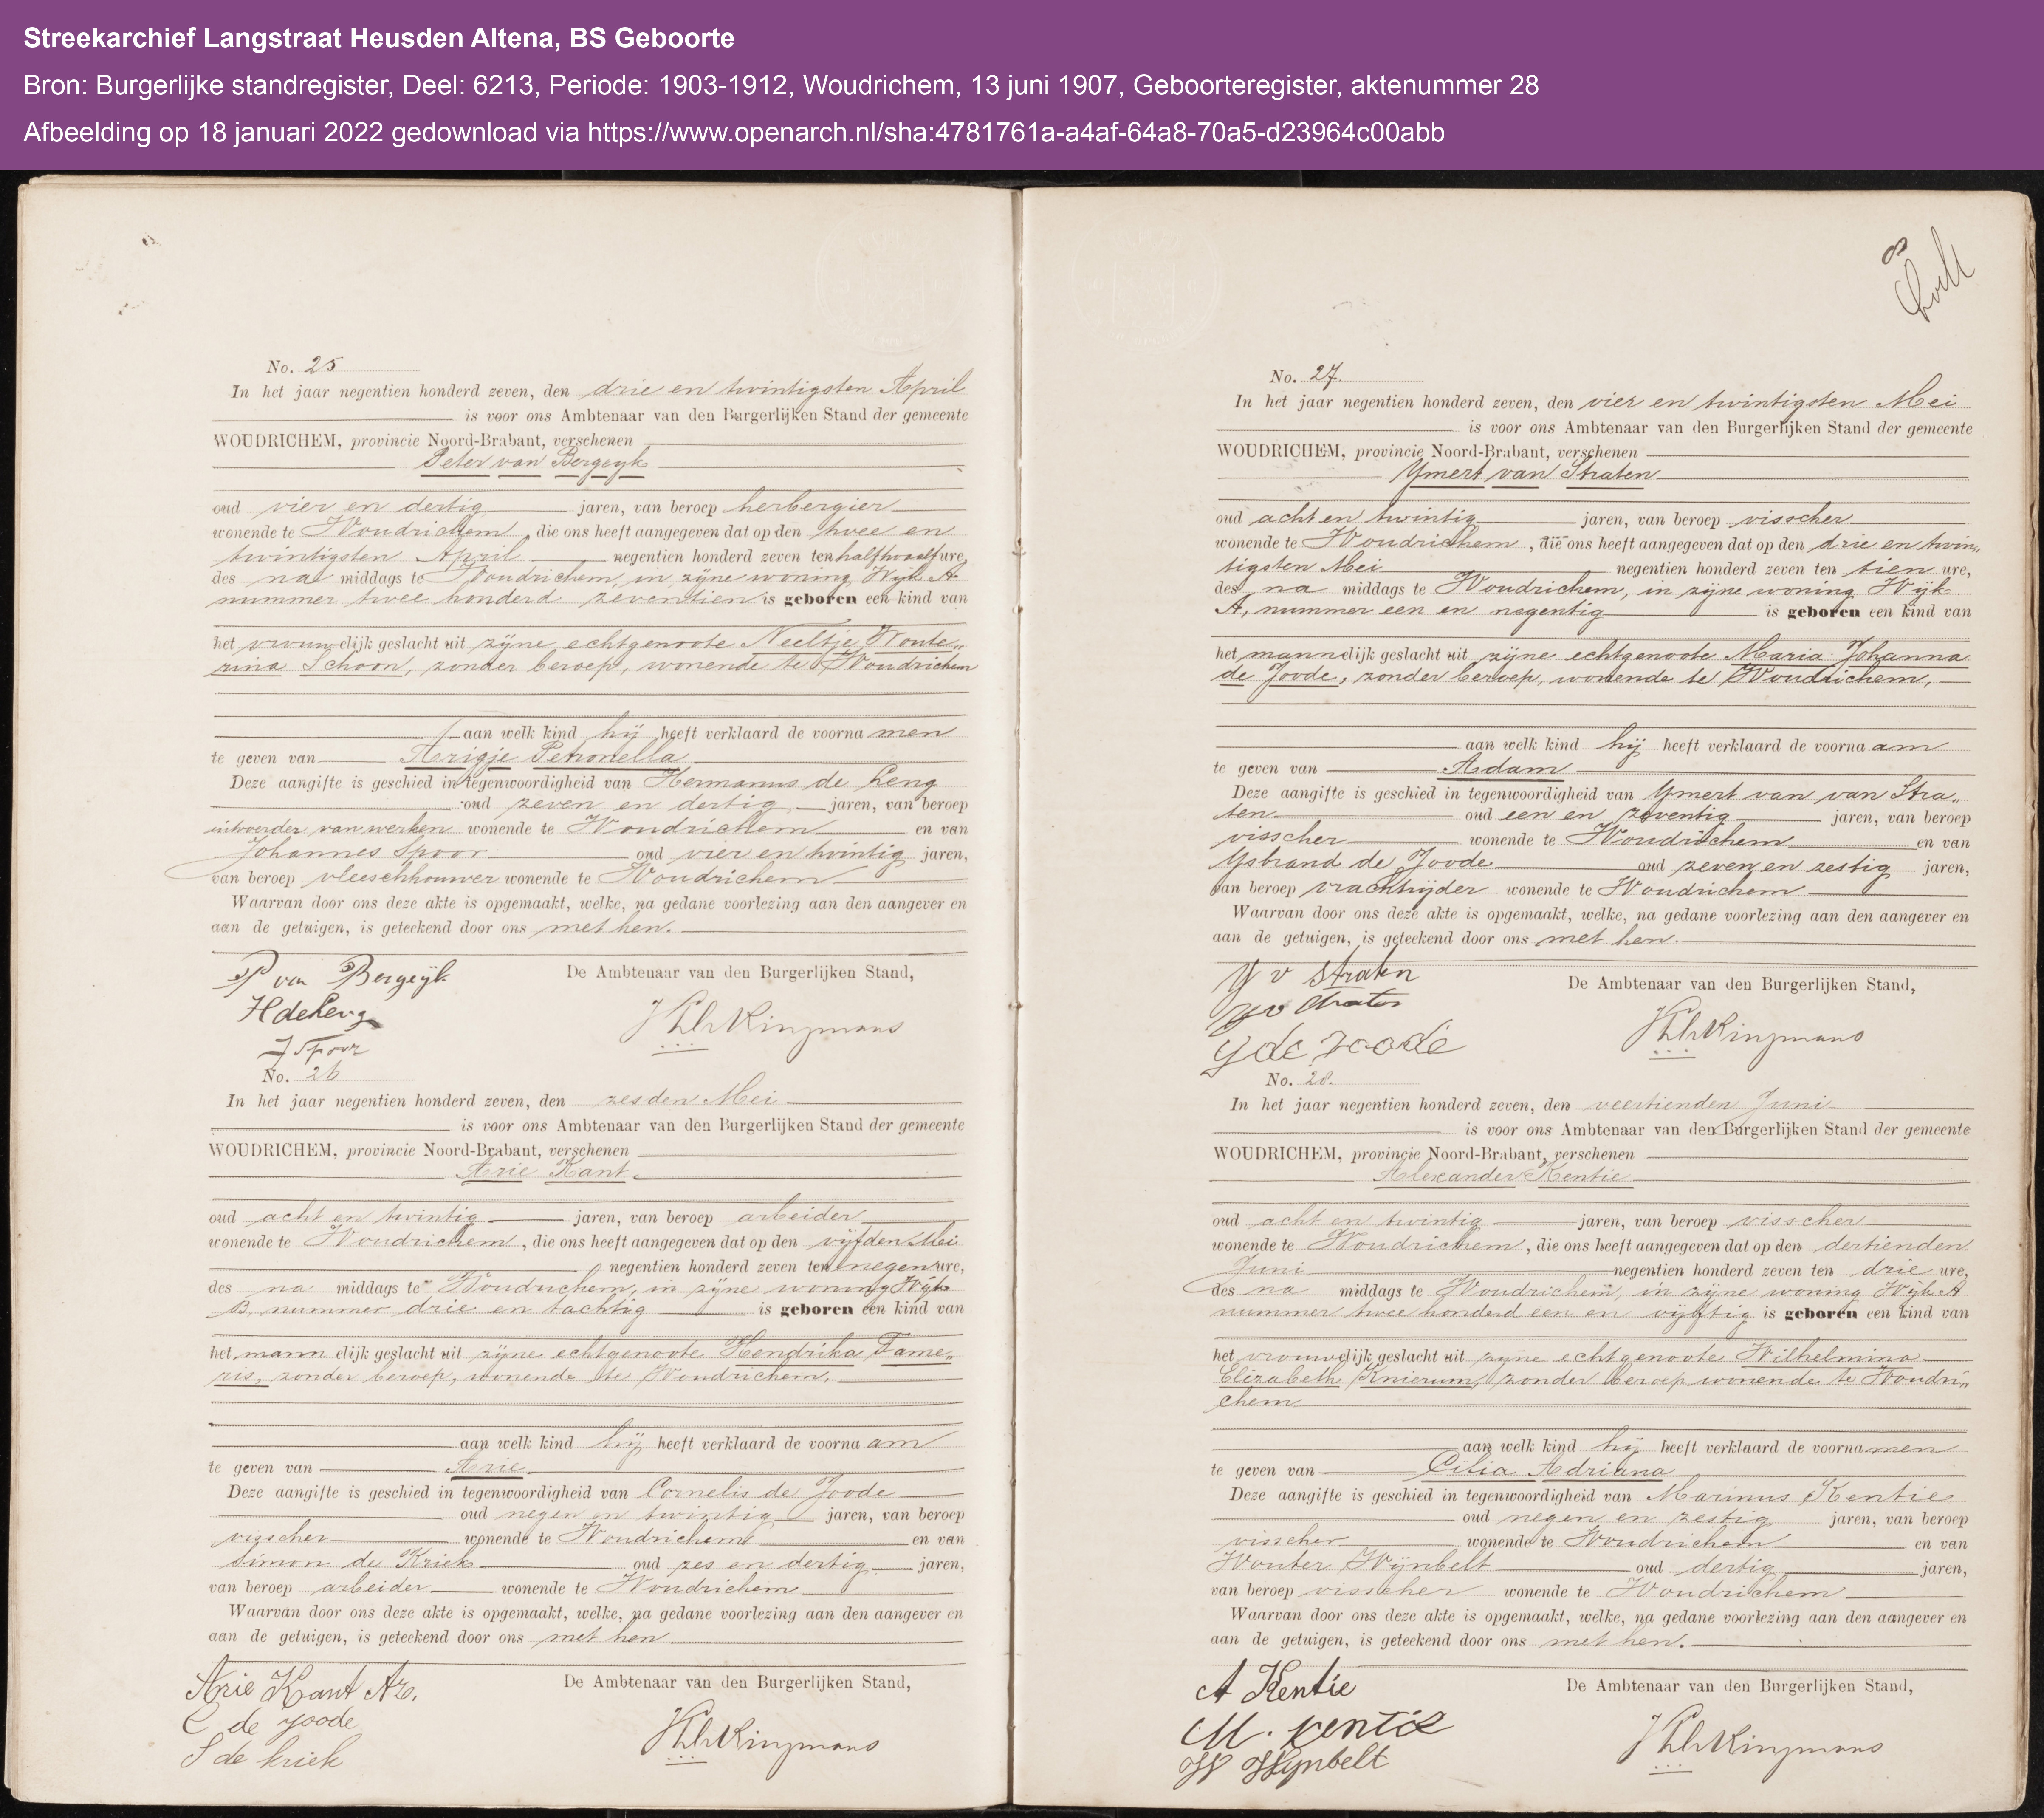 Streekarchief Langstraat Heusden Altena, BS Geboorte
Bron: Burgerlijke standregister, Deel: 6213, Periode: 1903-1912, Woudrichem, 13 juni 1907, Geboorteregister, aktenummer 28
Afbeelding op 18 januari 2022 gedownload via https://www.openarch.nl/sha:4781761a-a4af-64a8-70a5-d23964c00abb
No. 25
In het jaar negentien honderd zeven, den drie en twintigsten April
is voor ons Ambtenaar van den Burgerlijken Stand der gemeente
WOUDRICHEM, provincie Noord-Brabant, verschenen
Peter van Bergeyk
oud vier en dertig jaren, van beroep herbergier
wonende te Woudrichem, die ons heeft aangegeven dat op den twee en
twintigsten April negentien honderd zeven ten halftwaalf ure,
des na middags te Woudrichem, in zijne woning Wijk A
nummer twee honderd zeventien is geboren een kind van
het vrouwelijk geslacht uit zijne echtgenoote Neeltje Woute„
rina Schoon, zonder beroep, wonende te Woudrichem
aan welk kind hij heeft verklaard de voornamen
te geven van Aerigje Petronella
Deze aangifte is geschied in tegenwoordigheid van Hermanus de Leng
oud zeven en dertig jaren, van beroep
uitvoerder van werken wonende te Woudrichem en van
Johannes Spoor oud vier en twintig jaren,
van beroep vleeschhouwer wonende te Woudrichem
Waarvan door ons deze akte is opgemaakt, welke, na gedane voorlezing aan den aangever en
aan de getuigen, is geteekend door ons met hen.
P van Bergeijk
De Ambtenaar van den Burgerlijken Stand,
H de Leng
J Spoor
No. 26
In het jaar negentien honderd zeven, den zesden Mei
is voor ons Ambtenaar van den Burgerlijken Stand der gemeente
WOUDRICHEM, provincie Noord-Brabant, verschenen
Arie Kant
oud acht en twintig jaren, van beroep arbeider
wonende te Woudrichem, die ons heeft aangegeven dat op den vijfden Mei
negentien honderd zeven ten negen ure,
des na middags te Woudrichem, in zijne woning Wijk
B, nummer drie en tachtig is geboren een kind van
het mannelijk geslacht uit zijne echtgenoote Hendrika Tame„
ris, zonder beroep, wonende te Woudrichem,
aan welk kind hij heeft verklaard de voornaam
te geven van Arie
Deze aangifte is geschied in tegenwoordigheid van Cornelis de Joode
oud negen en twintig jaren, van beroep
visscher wonende te Woudrichem en van
Simon de Kriek oud zes en dertig jaren,
van beroep arbeider wonende te Woudrichem
Waarvan door ons deze akte is opgemaakt, welke, na gedane voorlezing aan den aangever en
aan de getuigen, is geteekend door ons met hen
Arie Kant Az.
De Ambtenaar van den Burgerlijken Stand,
C de joode
S de kriek
8
No. 27.
In het jaar negentien honderd zeven, den vier en twintigsten Mei
is voor ons Ambtenaar van den Burgerlijken Stand der gemeente
WOUDRICHEM, provincie Noord-Brabant, verschenen
Ymert van Straten
oud acht en twintig jaren, van beroep visscher
wonende te Woudrichem, die ons heeft aangegeven dat op den drie en twin„
tigsten Mei negentien honderd zeven ten tien ure,
des na middags te Woudrichem, in zijne woning Wijk
A, nummer een en negentig is geboren een kind van
het mannelijk geslacht uit zijne echtgenoote Maria Johanna
de Joode, zonder beroep, wonende te Woudrichem,
aan welk kind hij heeft verklaard de voornaam
te geven van Adam
Deze aangifte is geschied in tegenwoordigheid van Ymert van van Stra„
ten oud een en zeventig jaren, van beroep
visscher wonende te Woudrichem en van
Ysbrand de Joode oud zeven en zestig jaren,
van beroep vrachtrijder wonende te Woudrichem
Waarvan door ons deze akte is opgemaakt, welke, na gedane voorlezing aan den aangever en
aan de getuigen, is geteekend door ons met hen.
Y v Straten
De Ambtenaar van den Burgerlijken Stand,
y v straten
y de Joode
No. 28.
In het jaar negentien honderd zeven, den veertienden Juni
is voor ons Ambtenaar van den Burgerlijken Stand der gemeente
WOUDRICHEM, provincie Noord-Brabant, verschenen
Alexander Kentie
oud acht en twintig jaren, van beroep visscher
wonende te Woudrichem, die ons heeft aangegeven dat op den dertienden
Juni negentien honderd zeven ten drie ure,
des na middags te Woudrichem, in zijne woning Wijk A
nummer twee honderd een en vijftig is geboren een kind van
het vrouwelijk geslacht uit zijne echtgenoote Wilhelmina
Elizabeth Knierum, zonder beroep wonende te Woudri„
chem
aan welk kind hij heeft verklaard de voornamen
te geven van Cilia Adriana
Deze aangifte is geschied in tegenwoordigheid van Marinus Kentie
oud negen en zestig jaren, van beroep
visscher wonende te Woudrichem en van
Wouter Wijnbelt oud dertig jaren,
van beroep visscher wonende te Woudrichem
Waarvan door ons deze akte is opgemaakt, welke, na gedane voorlezing aan den aangever en
aan de getuigen, is geteekend door ons met hen.
A Kentie
De Ambtenaar van den Burgerlijken Stand,
M. Kentie
W Wijnbelt